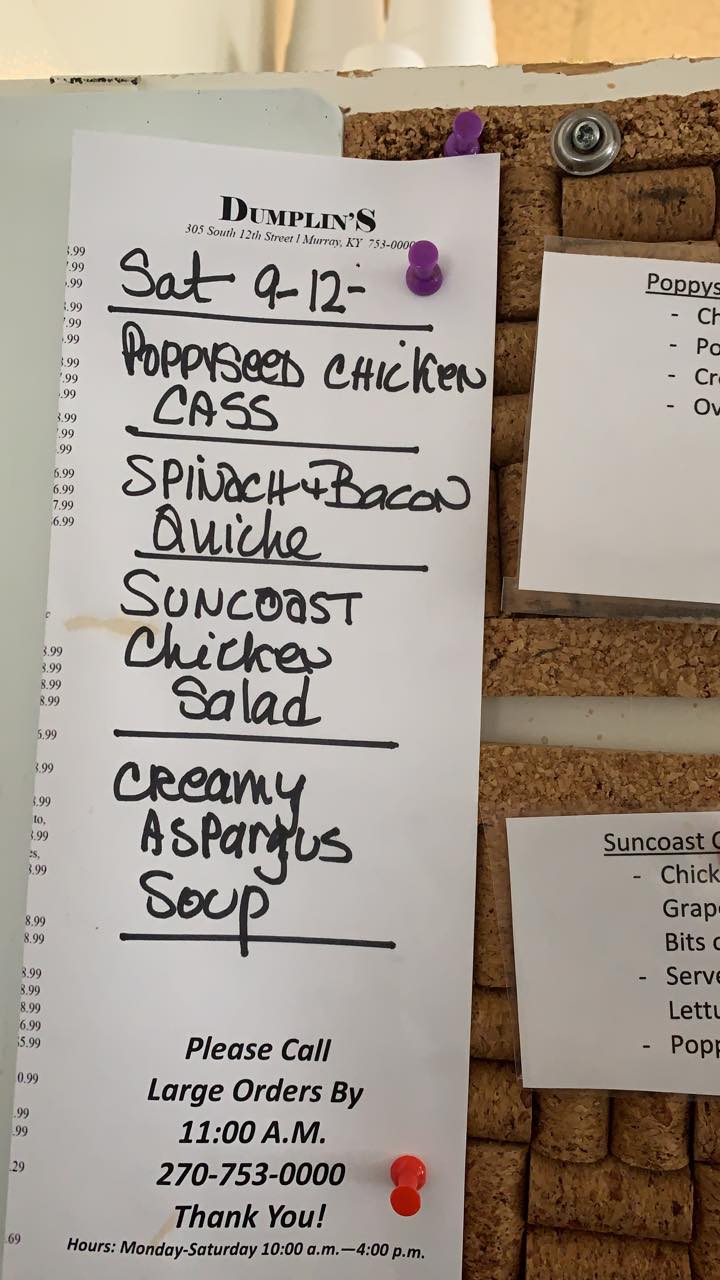 DUMPLIN'S
305 South 12th Street | Murray, KY 753-0000
Sat 9-12-
POPPYSEED CHICKEN
CASS
SPINACH + BACON
Quiche
SUNCOAST
Chicken
Salad
CREAMY
ASPARgUS
Soup
Please Call
Large Orders By
11:00 A.M.
270-753-0000
Thank You!
Hours: Monday-Saturday 10:00 a.m.—4:00 p.m.
.99
.99
.99
.99
.99
.99
.99
.99
.99
.99
.99
.99
6.99
6.99
7.99
6.99
8.99
8.99
8.99
8.99
.99
.99
.99
to,
.99
es,
.99
8.99
8.99
8.99
8.99
8.99
6.99
5.99
0.99
.99
.99
.29
.69
Poppys
- Ch
- Po
- Cr
- Ov
Suncoast C
- Chick
Grap
Bits o
- Serve
Lettu
- Popp